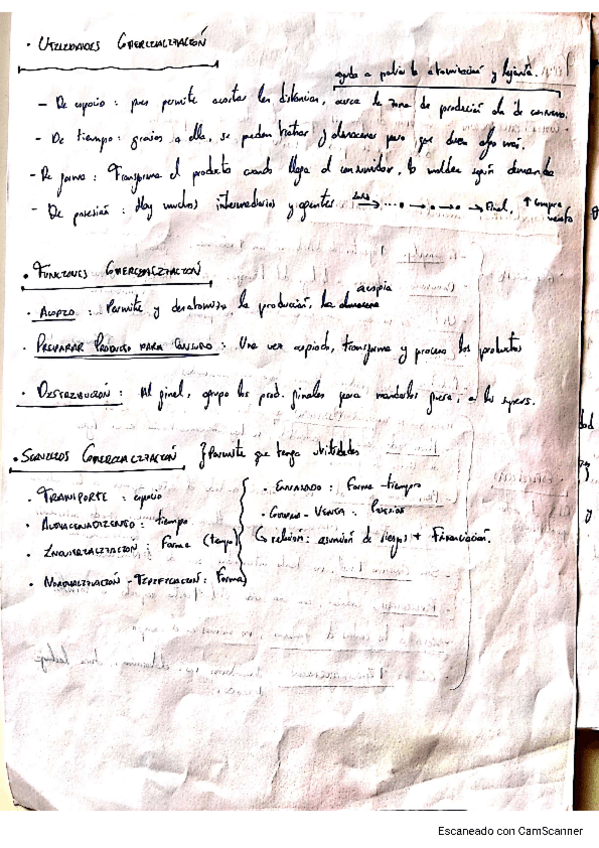 · UTILIDADES COMERCIALIZACIÓN
ayuda a paliar la atomización y lejanía.
- De espacio : pues permite acortar las distancias, acerca la zona de producción a la de consumo.
- De tiempo : gracias a ella, se pueden tratar y almacenar para que duren algo más.
- De forma : Transforma el producto cuando llega al consumidor, lo moldea según demanda
- De posesión : Hay muchos intermediarios y agentes → Final, ↑ Compra venta
· FUNCIONES COMERCIALIZACIÓN
acopia
· ACOPIO : Permite y desatomiza la producción, la almacena
· PREPARAR PRODUCTO PARA CONSUMO : Una vez acopiado, transforma y procesa los productos
· DISTRIBUCIÓN : Al final, agrupa los prod. finales para mandarlos fuera, a los supers.
· SERVICIOS COMERCIALIZACIÓN } Permite que tenga utilidades
· TRANSPORTE : espacio
· ALMACENAMIENTO : tiempo
· INDUSTRIALIZACIÓN : Forma (tiempo)
· NORMALIZACIÓN - TIPIFICACIÓN : Forma
· ENVASADO : Forma - tiempo
· COMPRA - VENTA : Posesión
↳ relación: asunción de riesgos + Financiación.
Escaneado con CamScanner